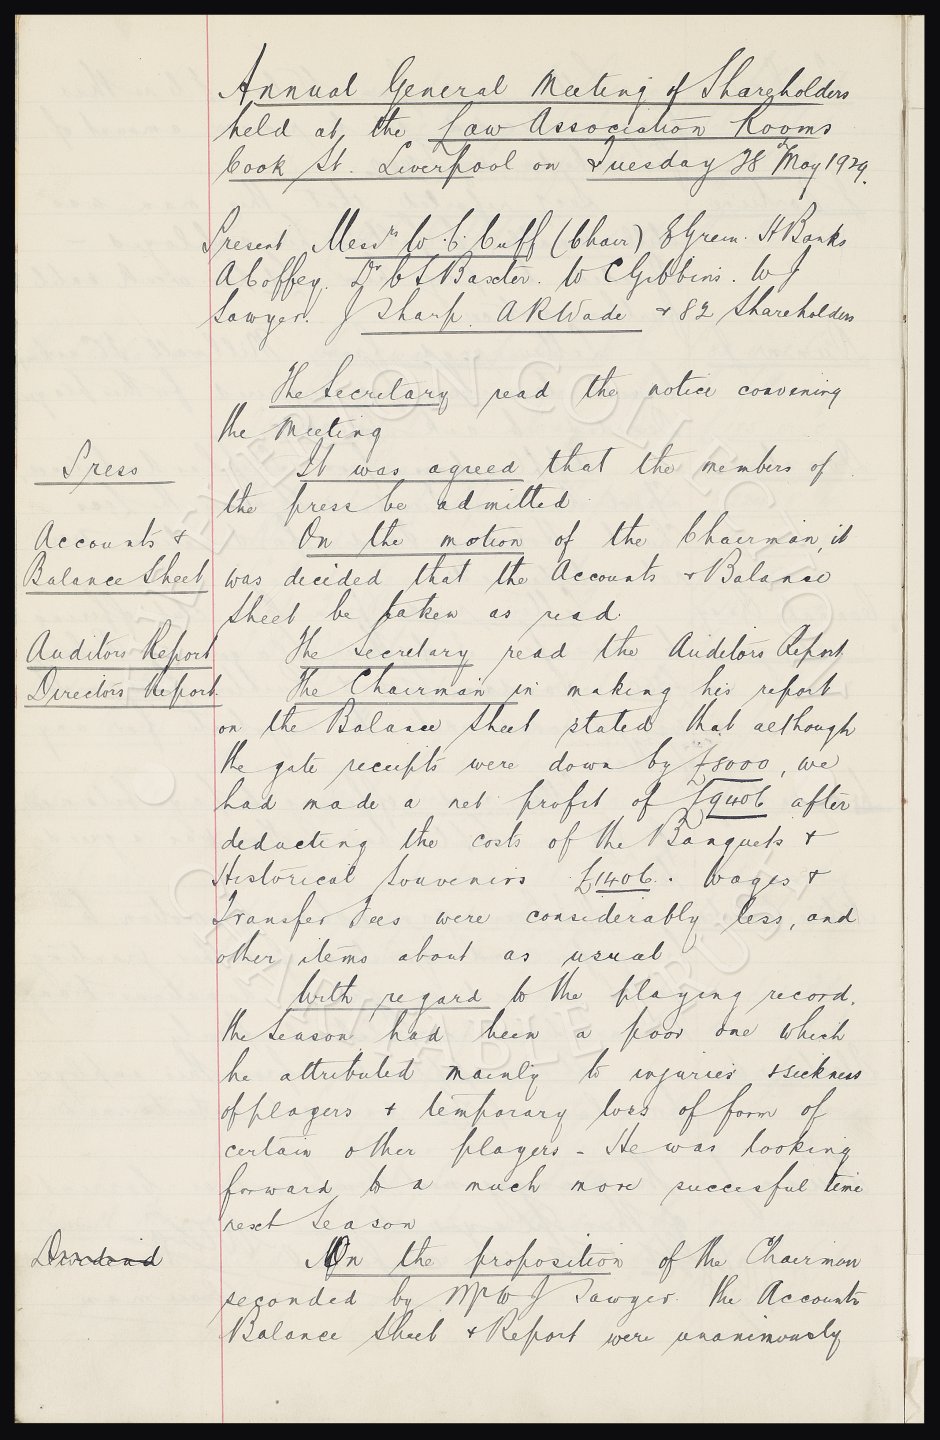 Annual General Meeting of Shareholders
held at the Law Association Rooms
Cook St. Liverpool on Tuesday 28 May 1929.
Present Messrs W. C. Cuff (Chair) E Green. H Banks
A Coffey. Dr C S Baxter. W C Gibbins. W J
Sawyer. J Sharp. A R Wade + 82 Shareholders
The Secretary read the notice convening
the Meeting
Press
It was agreed that the members of
the press be admitted
Accounts +
Balance Sheet
On the motion of the Chairman, it
was decided that the Accounts + Balance
Sheet be taken as read
Auditors Report
The Secretary read the Auditors Report
Directors Report
The Chairman in making his report
on the Balance Sheet stated that although
the gate receipts were down by £8000, we
had made a net profit of £9406 after
deducting the costs of the Banquets +
Historical Souvenirs £1406. Wages +
Transfer Fees were considerably less, and
other items about as usual
With regard to the playing record,
the Season had been a poor one which
he attributed mainly to injuries + sickness
of players + temporary loss of form of
certain other players - He was looking
forward to a much more succesful time
next Season
Dividend
On the proposition of the Chairman
seconded by Mr W J Sawyer. the Accounts
Balance Sheet + Report were unanimously